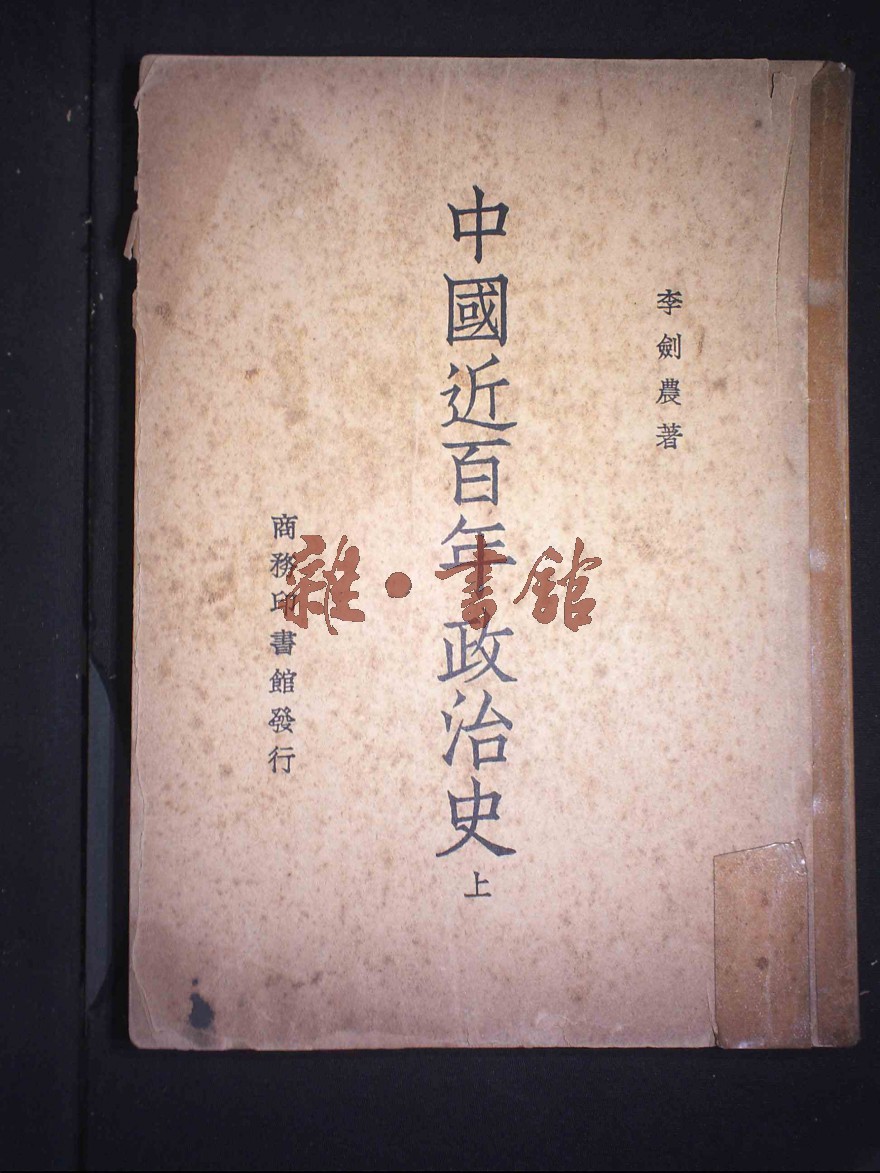 李劍農著
中國近百年政治史
上
商務印書館發行
雜·書館